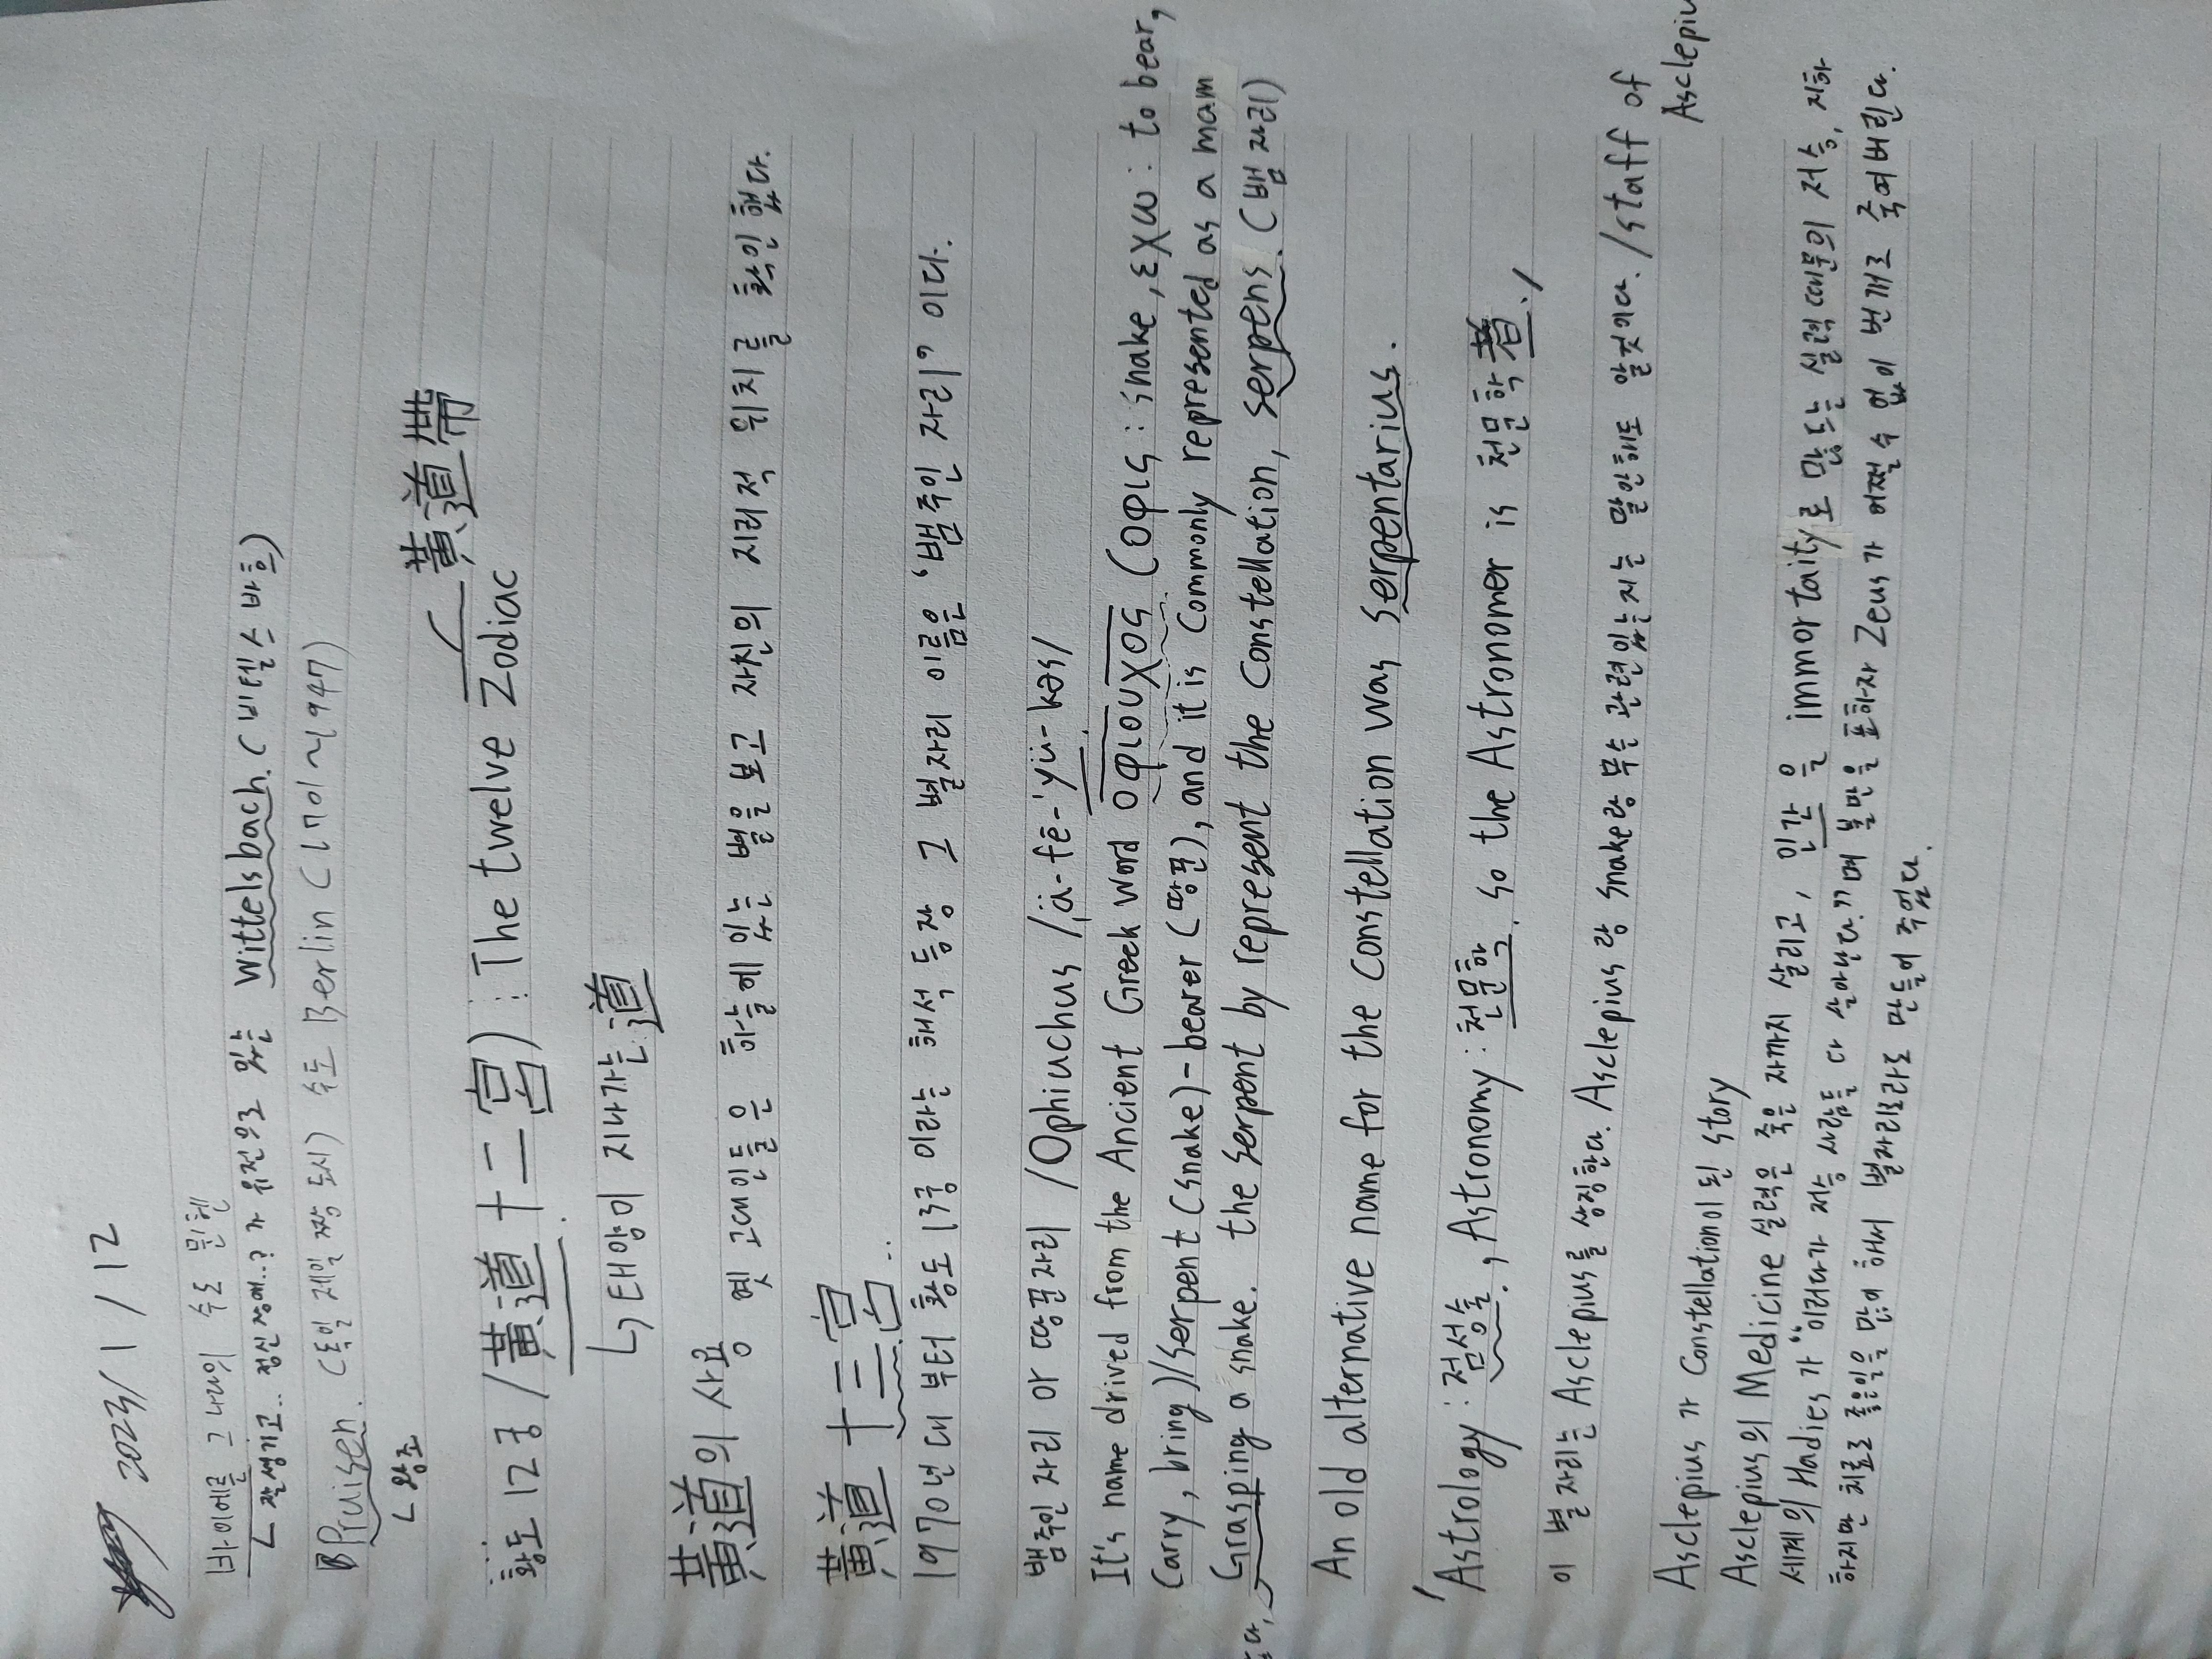 2023/1/12
바이에른 그 나라의 수도 뮌헨
ㄴ 잘생기고.. 정신장애..? 가 유전으로 있는 Wittelsbach. (비텔스바흐)
Pruisen. (독일 제일 짱 도시) 수도 Berlin (1701~1947)
ㄴ 왕조
황도 12궁 / 黃道十二宮) : The twelve Zodiac
黃道帶
ㄴ 태양이 지나가는 道
黃道의 사용 옛 고대인들은 하늘에 있는 별을 보고 자신의 지리적 위치를 확인했다.
黃道十三宮..
1970년대 부터 황도 13궁 이라는 해석 등장 그 별자리 이름은 '뱀주인 자리' 이다.
뱀주인 자리 아 땅꾼자리 /Ophiuchus /ˌä-fē-ˈyü-kəs/
It's name drived from the Ancient Greek word οφιουχος (οφις : snake, εχω : to bear,
Carry, bring)/serpent (snake)-bearer (땅꾼), and it is Commonly represented as a mam
Grasping a snake. the serpent by represent the Constellation, serpens. (뱀 자리)
An old alternative name for the constellation was serpentarius.
Astrology : 점성술, Astronomy : 천문학. so the Astronomer is 천문학者./
이 별 자리는 Asclepius를 상징한다. Asclepius 랑 snake랑 무슨 관련있는지는 말안해도 알것이다. /staff of
Asclepiu
Asclepius 가 Constellation이 된 story
Asclepius의 Medicine 실력은 죽은 자까지 살리고, 인간 을 immortaity로 만드는 실력 때문의 저승, 지하
세계의 Hadies 가 "이러다가 저승 사람들 다 살아난다."며 불만을 표하자 Zeus가 어쩔 수 없이 번개로 죽여버린다.
하지만 치료로 좋은일을 많이 해서 별자리로라도 만들어 주었다.